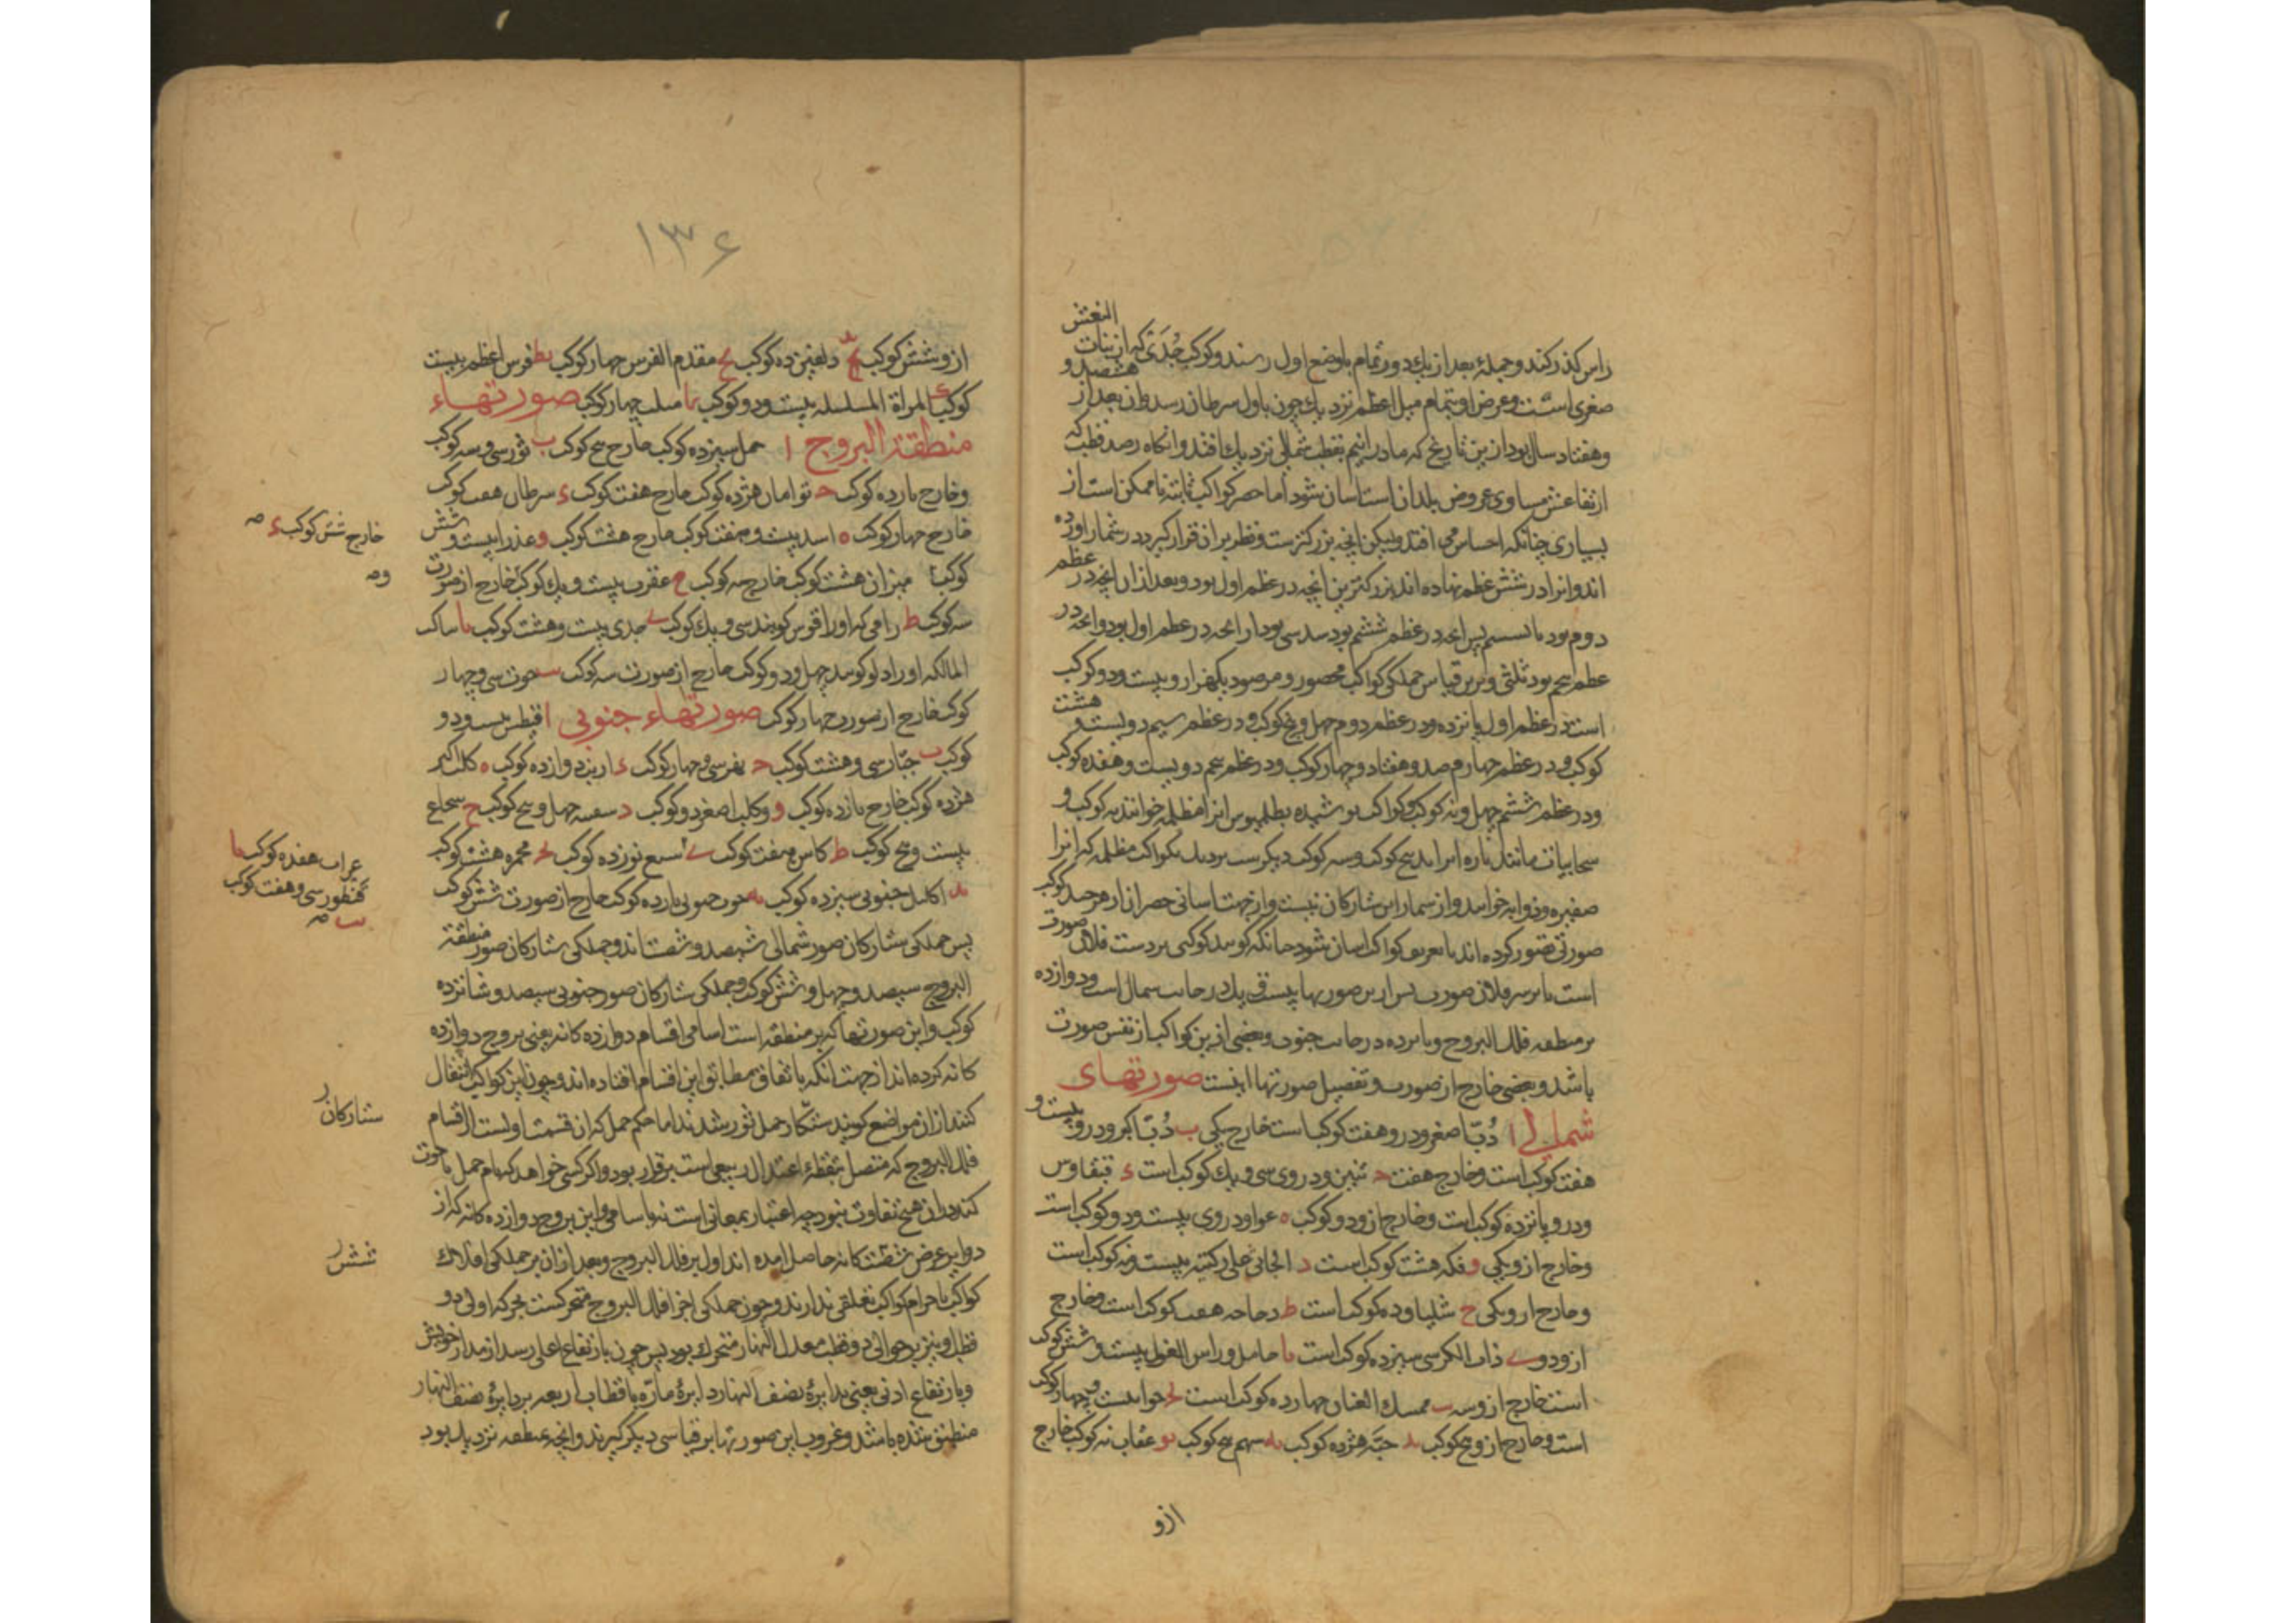 راس کذر کند و جمله بعد از یک دور تمام باوضع اول رسند و کوکب جُدَی که از بنات النعش
صغری است و عرض او بتمام میل اعظم نزدیک چون باول سرطان رسد و ان بعد از هشصد و
وهفتاد سال بود ازین تاریخ که ما در انیم بقطب شمالی نزدیک افتد و انکاه رصد قطب که
ارتفاعش مساوی عروض بلدان است اسان شود اما حصر کواکب ثابته ناممکن است از
بسیاری چنانکه احساس می افتد ولیکن انچه بزرکترست و نظر بر ان قرار کیرد در شمار اورده
اند و انرا در شش عظم نهاده اند بزرکترین انچه در عظم اول بود و بعد از ان انچه در عظم
دوم بود تا بششم پس انچه در عظم ششم بود سدسی بود از انچه در عظم اول بود و انچه در
عظم پنجم بود ثلثی و برین قیاس جملکی کواکب محصور و مرصود یکهزار و بیست و دو کوکب
است در عظم اول پانزده و در عظم دوم چهل و پنج کوکب و در عظم سیم دویست و هشت
کوکب و در عظم چهارم صد و هفتاد و چهار کوکب و در عظم پنجم دویست و هفده کوکب
ودر عظم ششم چهل و نه کوکب و کواکب پوشیده بطلمیوس انرا مظلمه خوانند نه کوکب و
سحابیات مانند پاره ابر اند پنج کوکب و سه کوکب دیکرست نزدیک بکواکب مظلمه که انرا
صفیره و ذوابه خوانند و از شمار این ستارکان نیست و از جهت اسانی حصر انرا از هر چند کوکب
صورتی تصور کرده اند تا تعریف کواکب اسان شود چنانکه کویند کوکبی بر دست فلان صورت
است یا بر سر فلان صورت پس ازین صورتها بیست و یک در جانب شمال است و دوازده
بر منطقه فلک البروج و پانزده در جانب جنوب و بعضی ازین کواکب از نفس صورت
باشد و بعضی خارج از صورت و تفصیل صورتها اینست صورتهای
شمالی ا دُبّ اصغر و درو هفت کوکب است خارج یکی ب دُبّ اکبر و درو بیست و
هفت کوکب است و خارج هفت ح تنین و در وی سی و یک کوکب است ء قیقاوس
ودرو یازده کوکب است و خارج ازو دو کوکب ه عوا و در وی بیست و دو کوکب است
وخارج ازو یکی و فکه هشت کوکب است د الجاثی علی رکبتیه بیست و نه کوکب است
وخارج ازو یکی ح شلیاق ده کوکب است ط دجاجه هفده کوکب است و خارج
ازو دو ی ذات الکرسی سیزده کوکب است یا حامل راس الغول بیست و شش کوکب
است خارج ازو سه یب ممسک العنان چهارده کوکب است یح حوا بیست و چهار کوکب
است و خارج ازو پنج کوکب ید حیّه هژده کوکب یه سهم پنج کوکب یو عقاب نه کوکب خارج
ازو
۱۳۶
ازو شش کوکب یر دلفین ده کوکب یح مقدم الفرس چهار کوکب یط فرس اعظم بیست
کوکب ک المراة المسلسله بیست و دو کوکب کا مثلث چهار کوکب صورتهاء
منطقة البروج ا حمل سیزده کوکب خارج پنج کوکب ب ثور سی و سه کوکب
وخارج یازده کوکب ح توامان هژده کوکب خارج هفت کوکب ء سرطان هفت کوکب
خارج چهار کوکب ه اسد بیست و هفت کوکب خارج هشت کوکب و عذرا بیست و شش
کوکب میزان هشت کوکب خارج نه کوکب ح عقرب بیست و یک کوکب خارج از صورت
سه کوکب ط رامی که او را قوس کویند سی و یک کوکب ی جدی بیست و هشت کوکب یا ساکب
الما که او را دلو کویند چهل و دو کوکب خارج از صورت سه کوکب یب حوت سی و چهار
کوکب خارج از صورت چهار کوکب صورتهاء جنوبی ا قیطس بیست و دو
کوکب ب جبّار سی و هشت کوکب ح نهر سی و چهار کوکب ء ارنب دوازده کوکب ه کلب اکبر
هژده کوکب خارج یازده کوکب و وکلب اصغر دو کوکب د سفینه چهل و پنج کوکب ح شجاع
بیست و پنج کوکب ط کاس هفت کوکب ی سبع نوزده کوکب یح مجمره هشت کوکب
ید اکلیل جنوبی سیزده کوکب یه حوت جنوبی یازده کوکب خارج از صورت شش کوکب
پس جملکی ستارکان صور شمالی سیصد و شصت اند و جملکی ستارکان صور منطقة
البروج سیصد و چهل و شش کوکب و جملکی ستارکان صور جنوبی سیصد و شانزده
کوکب و این صورتها که بر منطقه است اسامی اقسام دوازده کانه یعنی بروج دوازده
کانه کرده اند از جهت انکه باتفاق بمطابق این اقسام افتاده اند و چون این کواکب انتقال
کنند از ان مواضع کویند ستارکان حمل بثور شدند اما حکم حمل که ان قسمت اولست از اقسام
فلک البروج که متصل بنقطهٔ اعتدال ربیعی است برقرار بود و اکر کسی خواهد که نام حمل با حوت
کند در ان هیچ تفاوت نبود چه اعتبار بمعانی است نه باسامی و این بروج دوازده کانه که از
دوایر عرض ششکانه حاصل امده اند اول بر فلک البروج و بعد از ان بر جملکی افلاک
کواکب باجرام کواکب تعلقی ندارند و چون جملکی اجزا فلک البروج متحرکست بحرکه اولی دو
قطب او نیز بر حوالی دو قطب معدل النهار متحرک بود پس چون بارتفاع اعلی رسد از مدار خویش
وبارتفاع ادنی یعنی بدایرهٔ نصف النهار دایرهٔ مارّه باقطاب اربعه بر دایرهٔ نصف النهار
منطبق شده باشد و غروب این صورتها بر قیاسی دیکر کیرند و انچه بمنطقه نزدیک بود
خارج شش کوکب ء صـ
وصـ
غراب هفت کوکب یا
قنطورس سی و هفت کوکب
یب صـ
ستارکان
شش